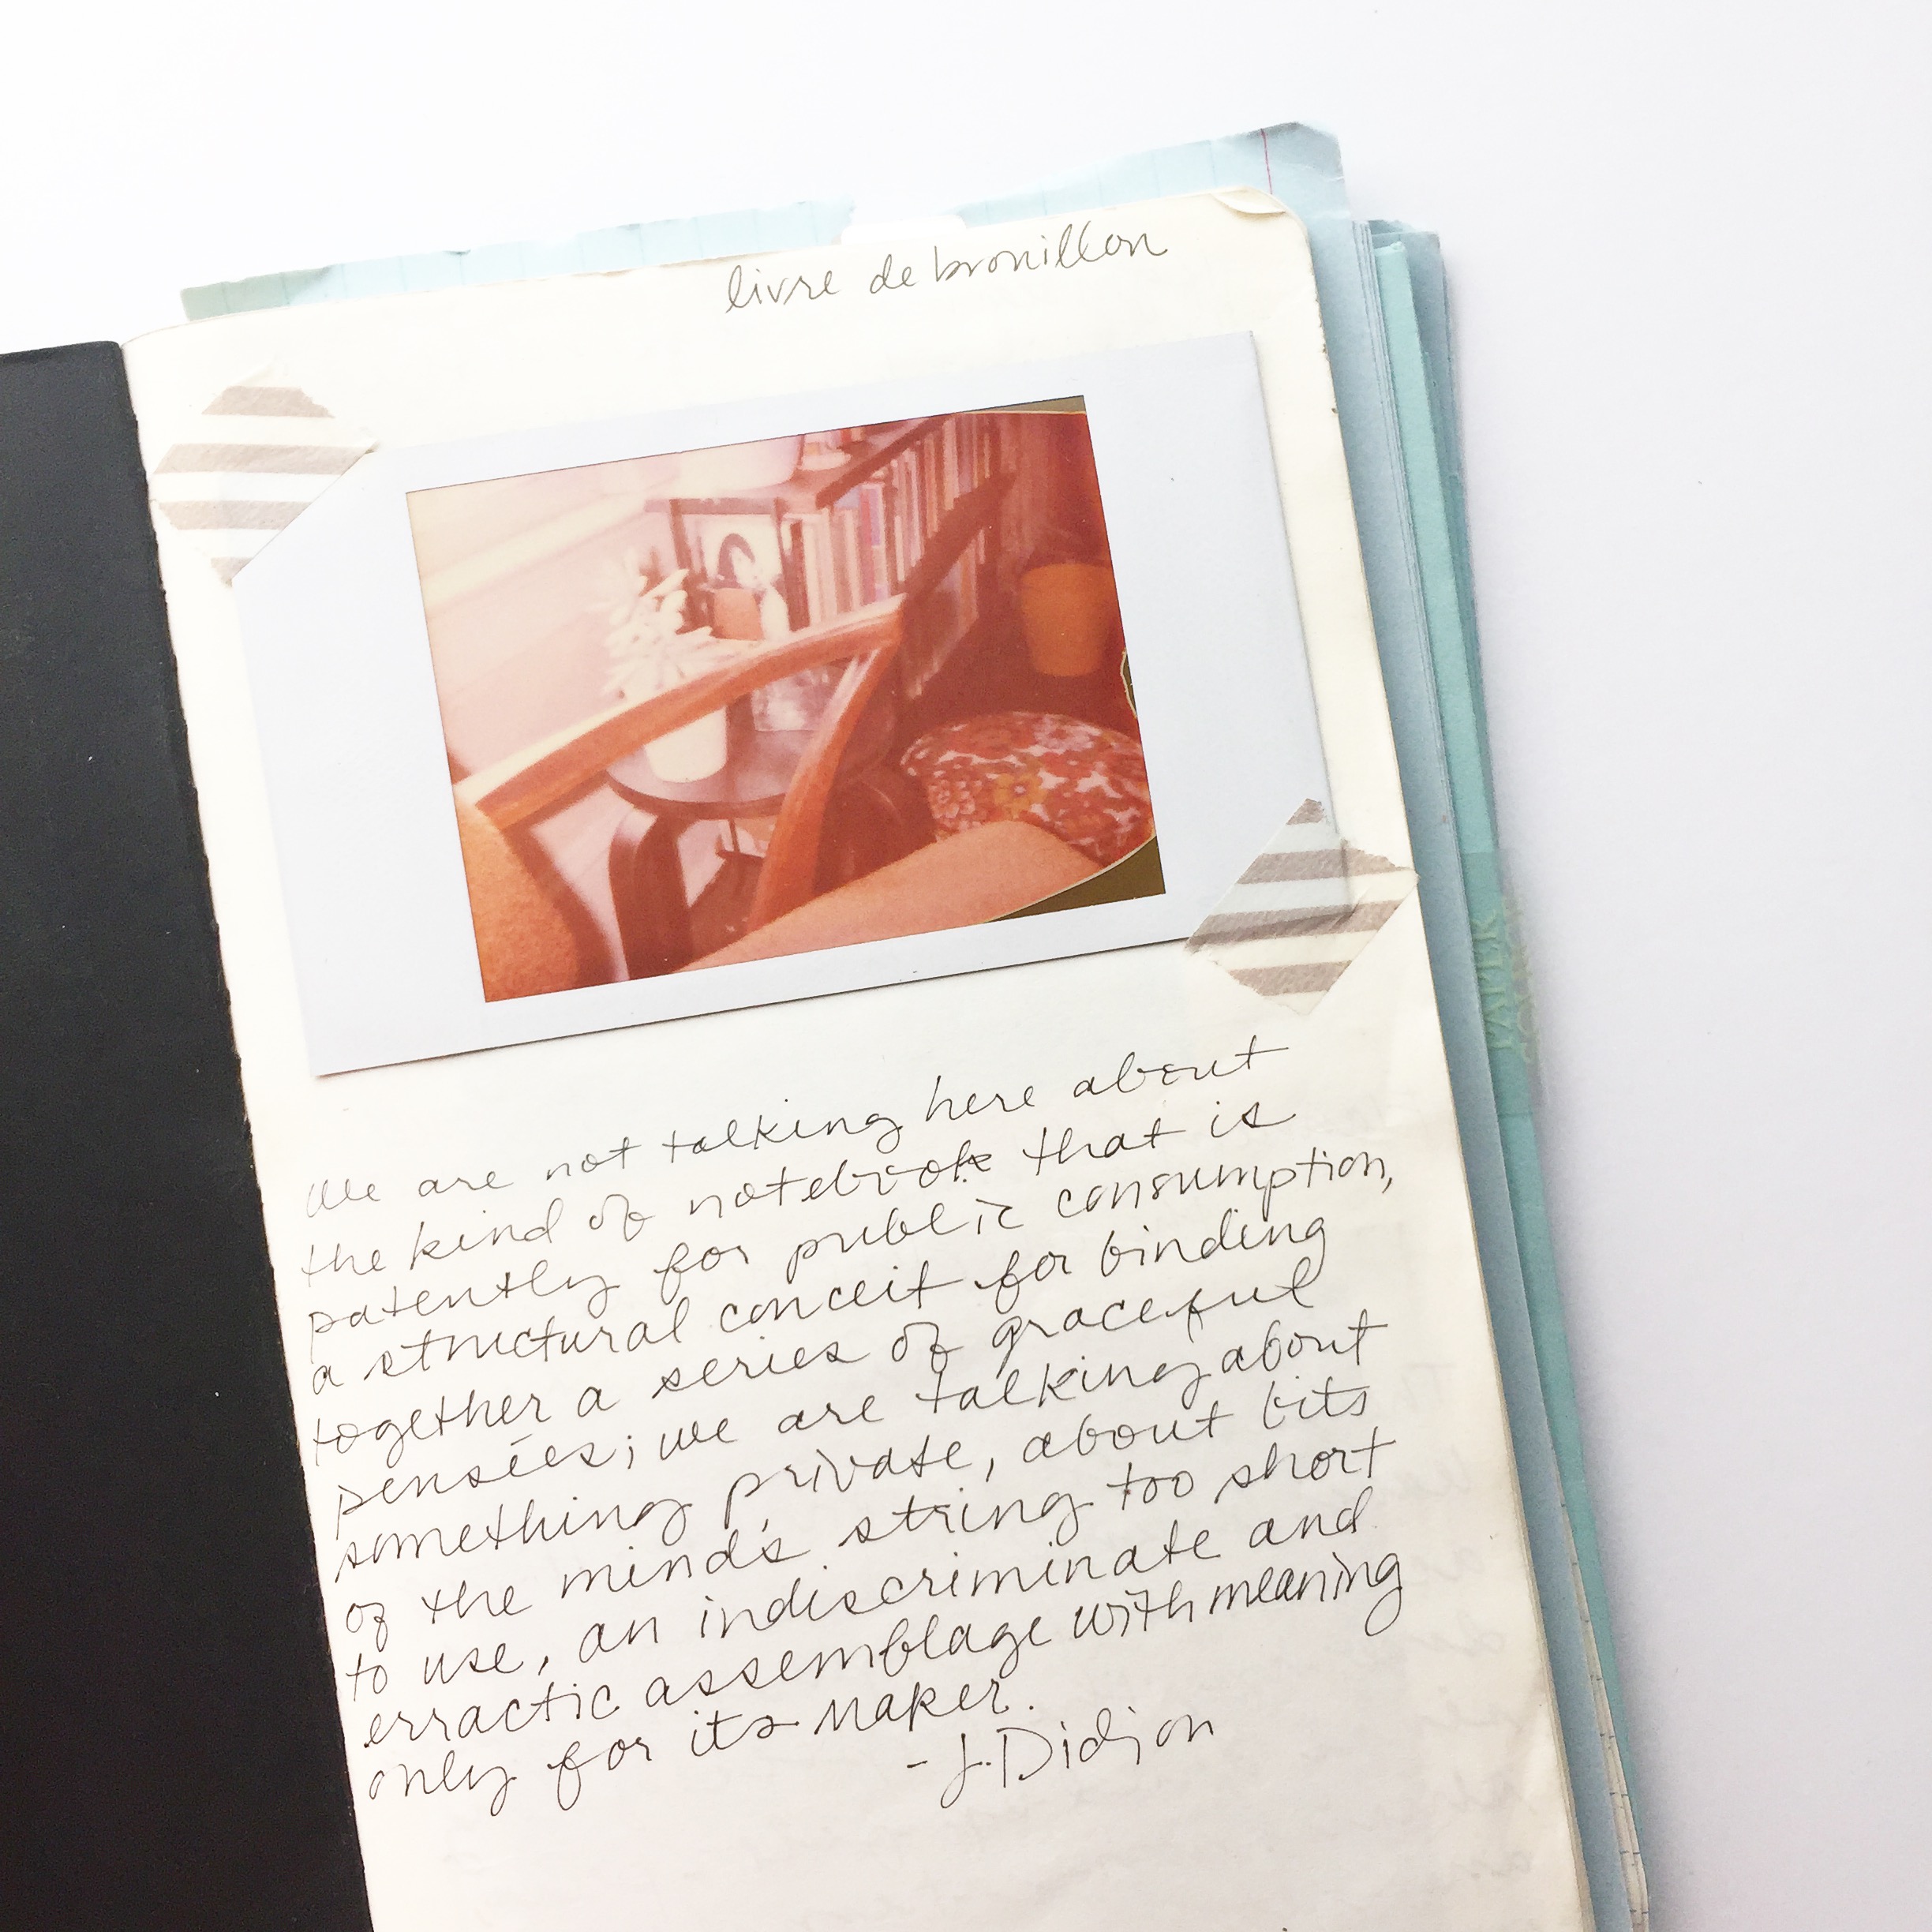 livre de brouillon
We are not talking here about
the kind of notebook that is
patently for public consumption,
a structural conceit for binding
together a series of graceful
pensées; we are talking about
something private, about bits
of the mind's string too short
to use, an indiscriminate and
erractic assemblage with meaning
only for its maker.
- J. Didion